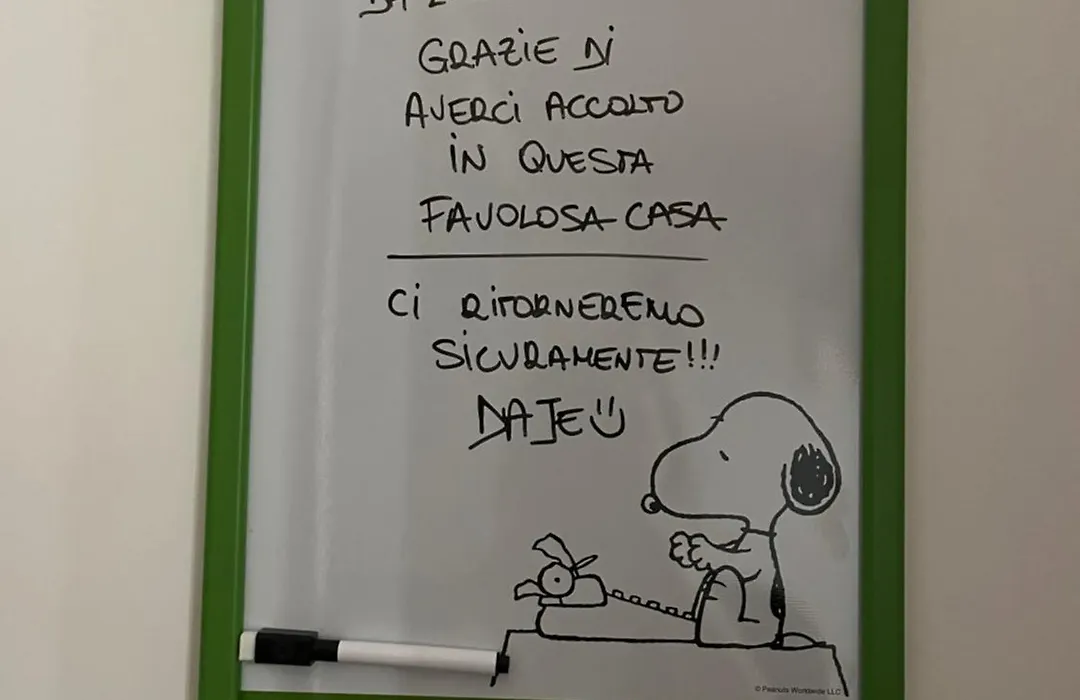 GRAZIE DI
AVERCI ACCOLTO
IN QUESTA
FAVOLOSA CASA
CI RITORNEREMO
SICURAMENTE!!!
DAJE
© Peanuts Worldwide LLC